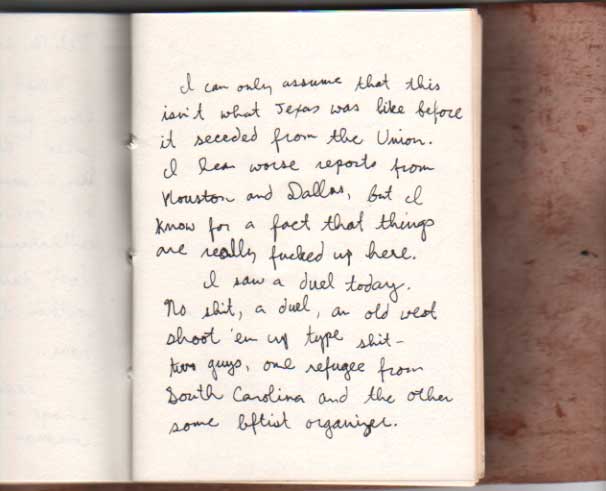 I can only assume that this
isn't what Texas was like before
it seceded from the Union.
I hear worse reports from
Houston and Dallas, but I
know for a fact that things
are really fucked up here.
I saw a duel today.
No shit, a duel, an old west
shoot 'em up type shit-
two guys, one refugee from
South Carolina and the other
some leftist organizer.